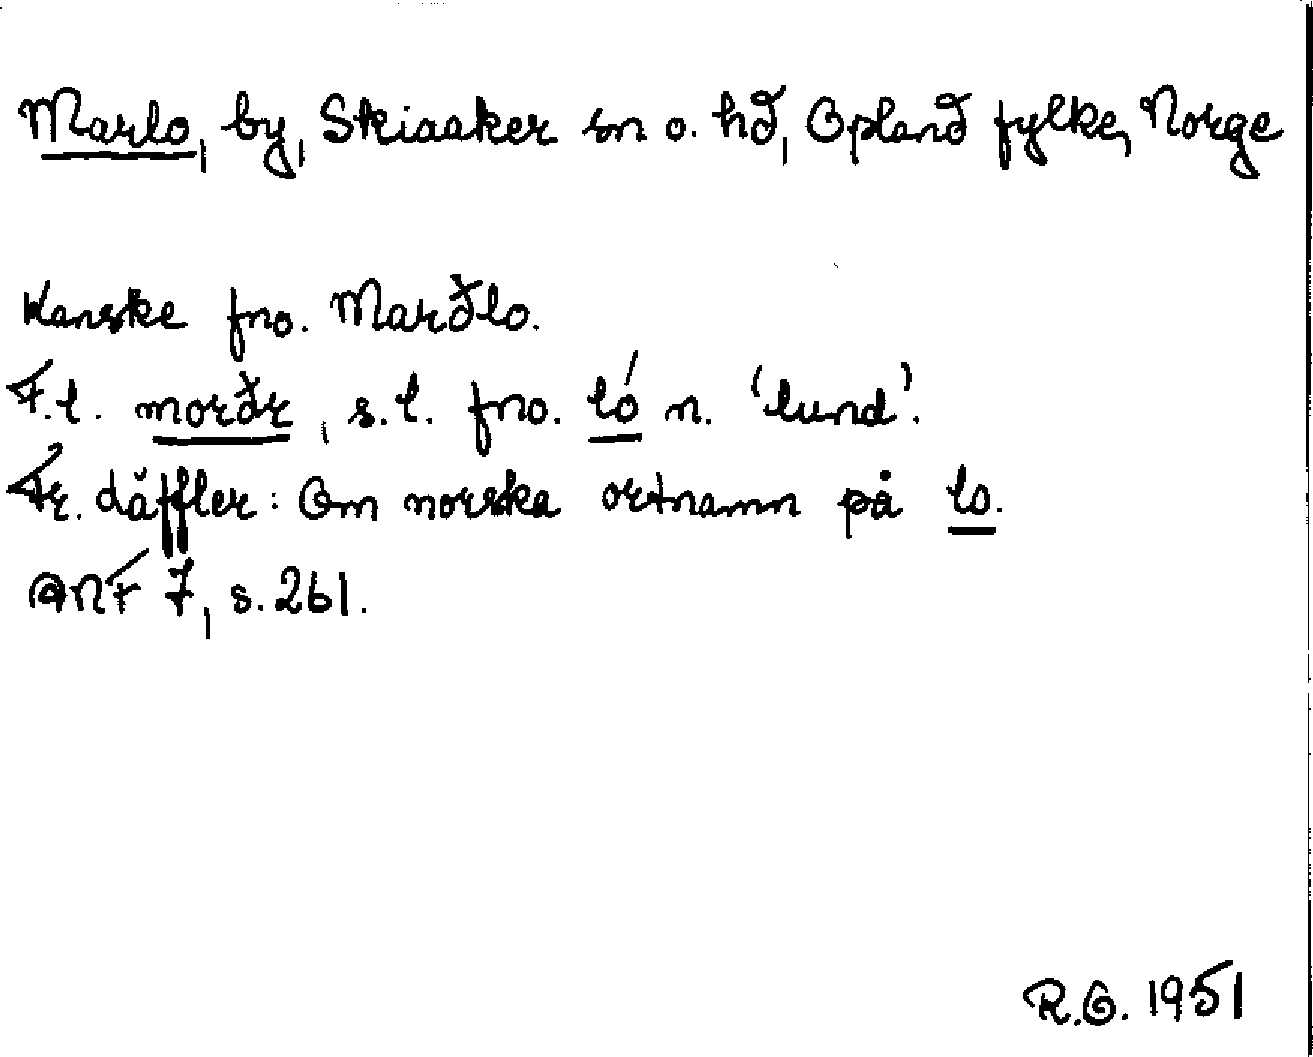 Marlo, by, Skiaaker sn o. hd, Opland fylke, Norge
Kanske fno. Marðlo.
F.l. morðr, s.l. fno. ló n. 'lund'.
Fr. Läffler: Om norska ortnamn på lo.
ANF 7, s. 261.
R.G. 1951